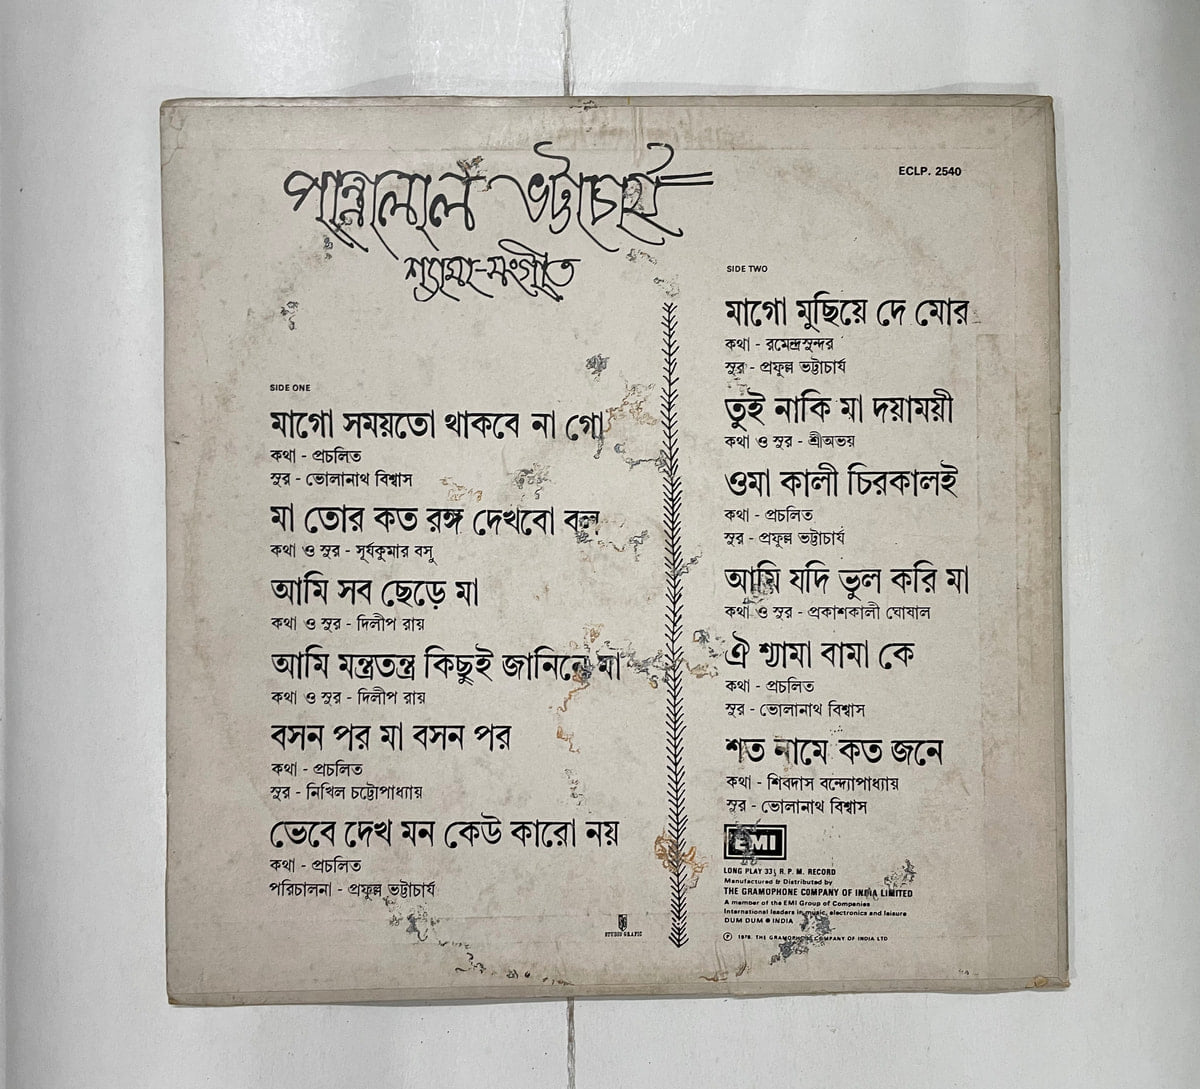 পান্নালাল ভট্টাচার্য
শ্যামা-সংগীত
ECLP. 2540
SIDE ONE
মাগো সময়তো থাকবে না গো
কথা - প্রচলিত
সুর - ভোলানাথ বিশ্বাস
মা তোর কত রঙ্গ দেখবো বল
কথা ও সুর - সূর্যকুমার বসু
আমি সব ছেড়ে মা
কথা ও সুর - দিলীপ রায়
আমি মন্ত্রতন্ত্র কিছুই জানিনে মা
কথা ও সুর - দিলীপ রায়
বসন পর মা বসন পর
কথা - প্রচলিত
সুর - নিখিল চট্টোপাধ্যায়
ভেবে দেখ মন কেউ কারো নয়
কথা - প্রচলিত
পরিচালনা - প্রফুল্ল ভট্টাচার্য
STUDIO GRAFIC
SIDE TWO
মাগো মুছিয়ে দে মোর
কথা - রমেন্দ্রসুন্দর
সুর - প্রফুল্ল ভট্টাচার্য
তুই নাকি মা দয়াময়ী
কথা ও সুর - শ্রীঅভয়
ওমা কালী চিরকালই
কথা - প্রচলিত
সুর - প্রফুল্ল ভট্টাচার্য
আমি যদি ভুল করি মা
কথা ও সুর - প্রকাশকালী ঘোষাল
ঐ শ্যামা বামা কে
কথা - প্রচলিত
সুর - ভোলানাথ বিশ্বাস
শত নামে কত জনে
কথা - শিবদাস বন্দ্যোপাধ্যায়
সুর - ভোলানাথ বিশ্বাস
EMI
LONG PLAY 33⅓ R. P. M. RECORD
Manufactured & Distributed by
THE GRAMOPHONE COMPANY OF INDIA LIMITED
A member of the EMI Group of Companies
International leaders in music, electronics and leisure
DUM DUM ● INDIA
THE GRAMOPHONE COMPANY OF INDIA LTD